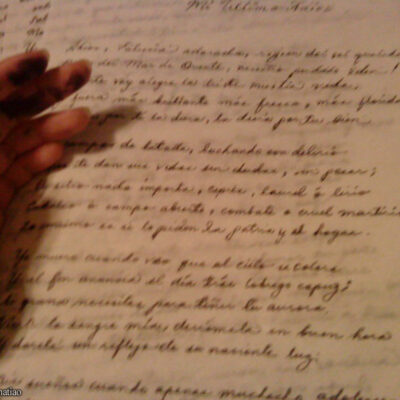 Mi Ultimo Adios
Adios, Patria adorada, region del sol querida
del Mar de Oriente, nuestro perdido eden!
te voy alegre la triste mustia vida,
fuera más brillante más fresca, más florida
por ti la diera, la diera por tu bien
campos de batalla, luchando con delirio
te dan sus vidas sin dudas, sin pesar;
El sitio nada importa, cipres, laurel ó lirio
Cadalso ó campo abierto, combate o cruel martirio
Lo mismo es si lo piden la patria y el hogar.
Yo muero cuando veo que al cielo se colora
Y al fin anuncia el día tras lobrego capuz;
grana necesitas para teñir tu aurora,
la sangre mia, derramala en buen hora
Y dorela un reflejo de su naciente luz.
Mis sueños cuando apenas muchacho